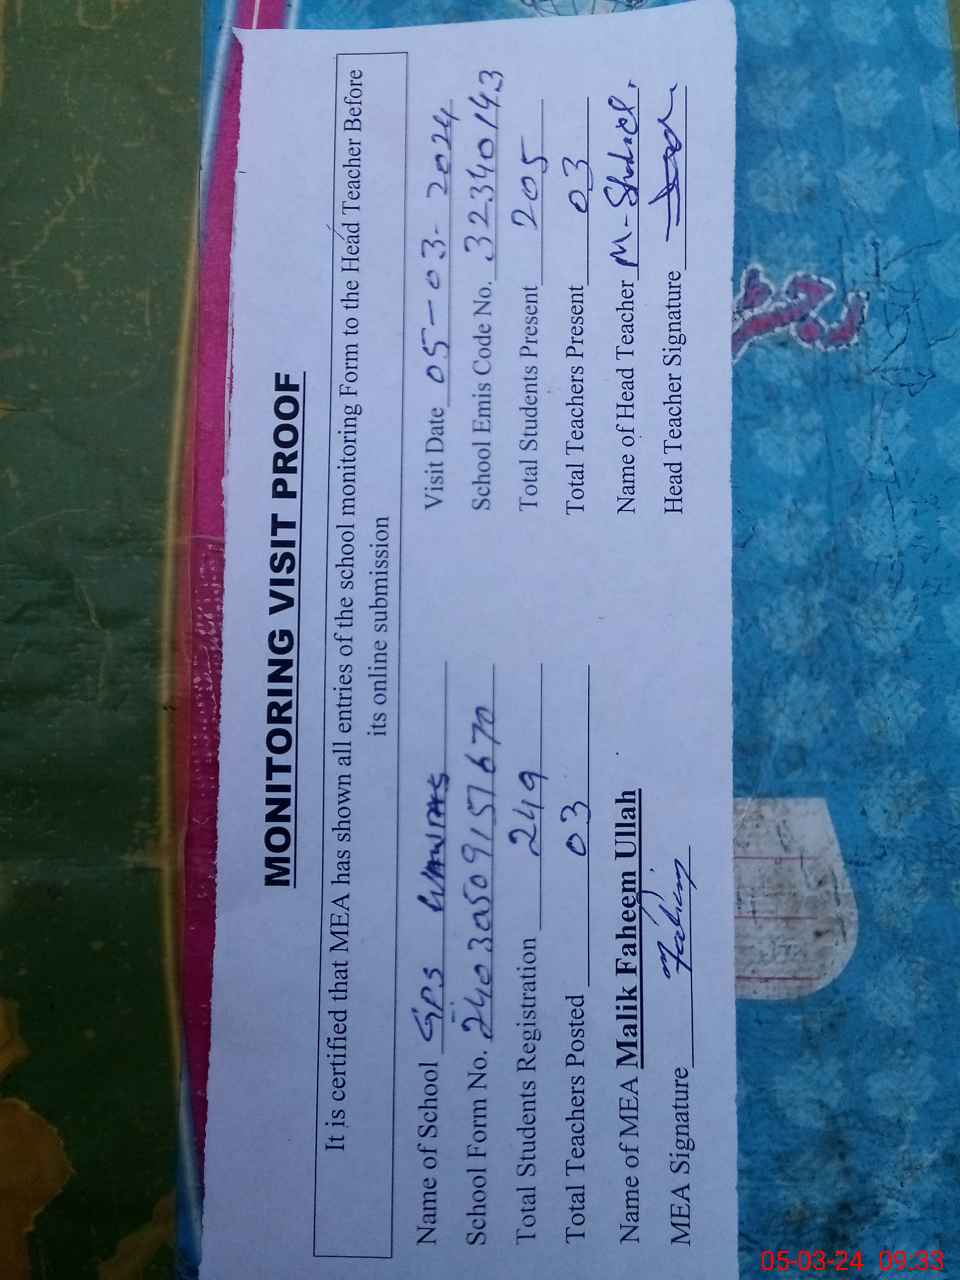 MONITORING VISIT PROOF
It is certified that MEA has shown all entries of the school monitoring Form to the Head Teacher Before
its online submission
Name of School GPS Visit Date 05-03-2024
School Form No. 24030509157670 School Emis Code No. 32340143
Total Students Registration 249 Total Students Present 205
Total Teachers Posted 03 Total Teachers Present 03
Name of MEA Malik Faheem Ullah Name of Head Teacher M-
MEA Signature Head Teacher Signature
05-03-24 09:33